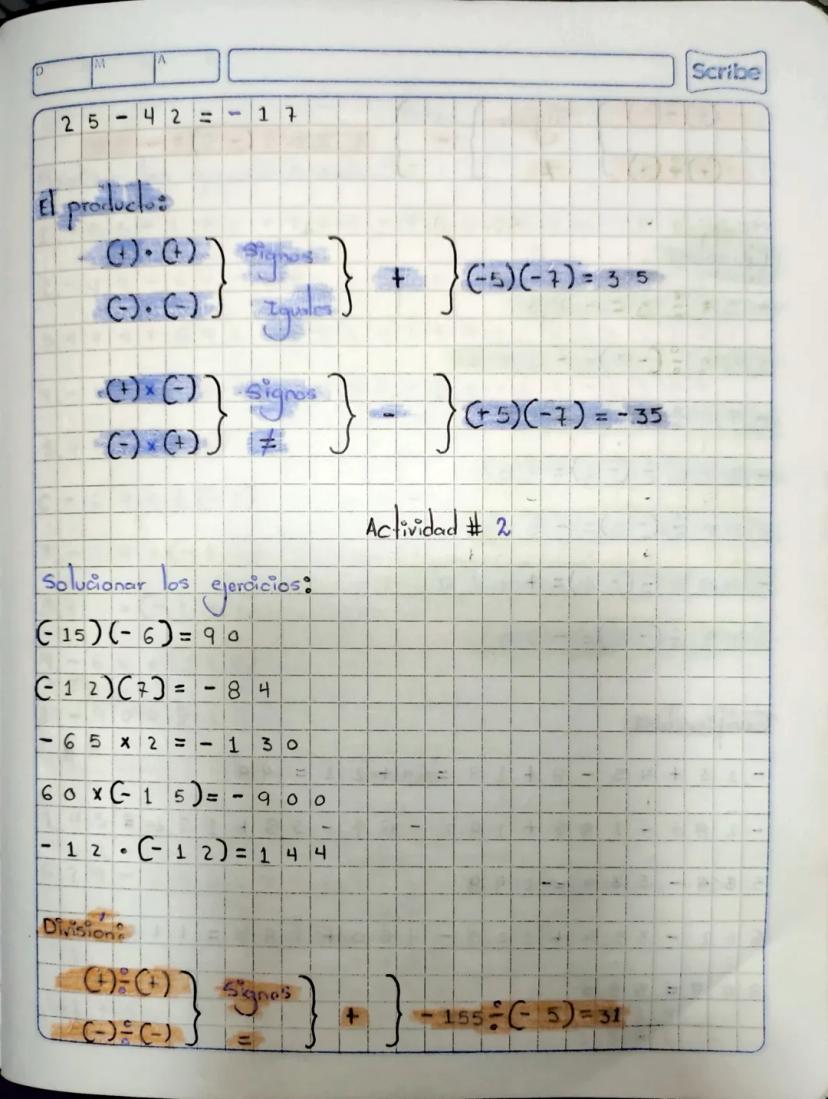 D M A Scribe
25-42=-17
El producto:
(+)·(+) Signos
+ (-5)(-7)=35
(-)·(-) Iguales
(+)x(-) Signos
- (+5)(-7)=-35
(-)x(+) ≠
Actividad # 2
Solucionar los ejercicios:
(-15)(-6)=90
(-12)(7)=-84
-65x2=-130
60x(-15)=-900
-12·(-12)=144
División:
(+)÷(+) Signos
+ -155÷(-5)=31
(-)÷(-) =